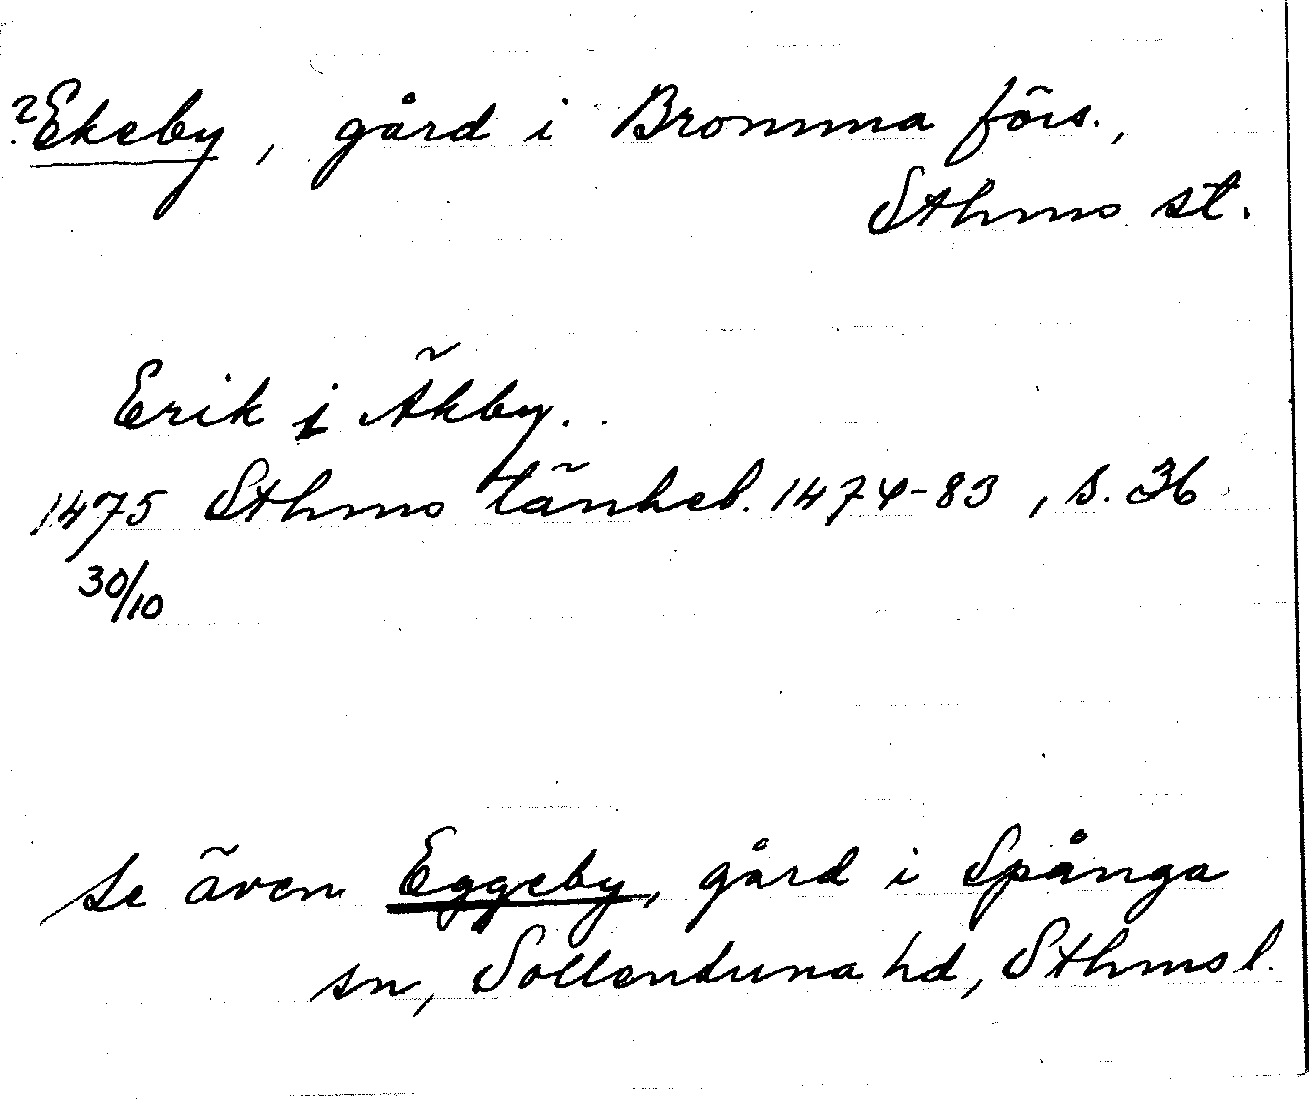 ?Ekeby, gård i Bromma förs.,
Sthms st.
Erik i Äkby.
1475 Sthms tänkeb. 1474-83, s. 36
30/10
se även Eggeby, gård i Spånga
sn, Sollentuna hd, Sthms l.